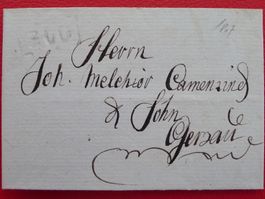 Herrn
Joh. Melchior Camenzind
& Sohn
Gersau